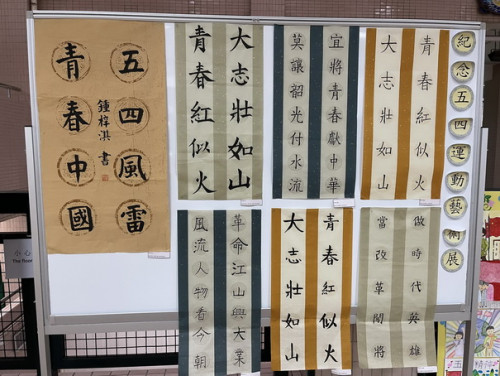 紀念五四運動藝術展
青春紅似火
大志壯如山
宜將青春獻中華
莫讓韶光付水流
大志壯如山
青春紅似火
五四風雷
青春中國
鍾梓淇書
做時代英雄
當改革闖將
青春紅似火
大志壯如山
革命江山興大業
風流人物看今朝
小心